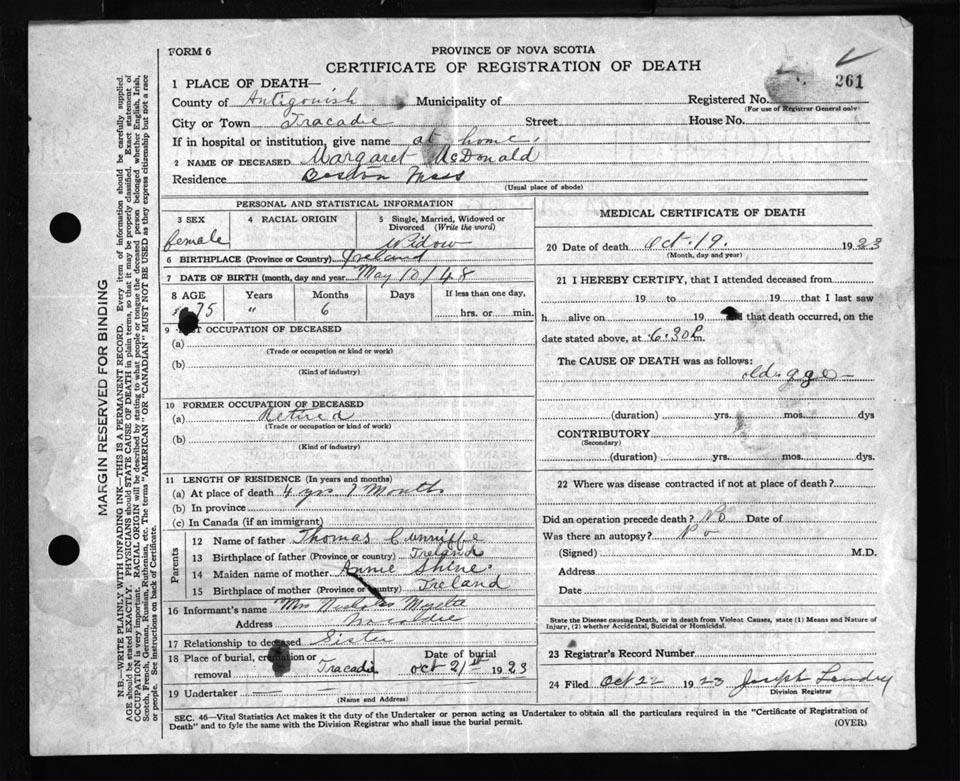 FORM 6
PROVINCE OF NOVA SCOTIA
CERTIFICATE OF REGISTRATION OF DEATH
261
1 PLACE OF DEATH—
County of Antigonish Municipality of Registered No.
(For use of Registrar General only)
City or Town Tracadie Street House No.
If in hospital or institution, give name at home
2 NAME OF DECEASED Margaret McDonald
Residence Boston Mass
(Usual place of abode)
PERSONAL AND STATISTICAL INFORMATION
3 SEX 4 RACIAL ORIGIN 5 Single, Married, Widowed or Divorced (Write the word)
female Widow
6 BIRTHPLACE (Province or Country) Ireland
7 DATE OF BIRTH (month, day and year) May 10/48
8 AGE Years Months Days If less than one day,
75 " 6 hrs. or min.
9 OCCUPATION OF DECEASED
(a)
(Trade or occupation or kind or work)
(b)
(Kind of industry)
10 FORMER OCCUPATION OF DECEASED
(a) Retired
(Trade or occupation or kind of work)
(b)
(Kind of industry)
11 LENGTH OF RESIDENCE (In years and months)
(a) At place of death 4 yrs 1 Month
(b) In province
(c) In Canada (if an immigrant)
Parents
12 Name of father Thomas Cunniffe
13 Birthplace of father (Province or country) Ireland
14 Maiden name of mother Annie Shine
15 Birthplace of mother (Province or country) Ireland
16 Informant's name Mrs Nicholas
Address
17 Relationship to deceased Sister
18 Place of burial, cremation or removal Tracadie Date of burial Oct 21st 1923
19 Undertaker — —
(Name and Address)
MEDICAL CERTIFICATE OF DEATH
20 Date of death Oct. 19. 1923
(Month, day and year)
21 I HEREBY CERTIFY, that I attended deceased from
19 to 19 that I last saw
h alive on 19 and that death occurred, on the
date stated above, at 6.30 P. m.
The CAUSE OF DEATH was as follows:
old age
(duration) yrs. mos. dys
CONTRIBUTORY
(Secondary)
(duration) yrs. mos. dys.
22 Where was disease contracted if not at place of death?
Did an operation precede death? No Date of
Was there an autopsy? No
(Signed) M.D.
Address
Date
State the Disease causing Death, or in death from Violent Causes, state (1) Means and Nature of
Injury, (2) whether Accidental, Suicidal or Homicidal.
23 Registrar's Record Number
24 Filed Oct 22 1923 Joseph Landry
Division Registrar
SEC. 46—Vital Statistics Act makes it the duty of the Undertaker or person acting as Undertaker to obtain all the particulars required in the "Certificate of Registration of
Death" and to fyle the same with the Division Registrar who shall issue the burial permit.
(OVER)
MARGIN RESERVED FOR BINDING
N.B.—WRITE PLAINLY WITH UNFADING INK—THIS IS A PERMANENT RECORD. Every item of information should be carefully supplied.
AGE should be stated EXACTLY. PHYSICIANS should STATE CAUSE OF DEATH in plain terms, so that it may be properly classified. Exact statement of
OCCUPATION is very important. RACIAL ORIGIN will be described by stating to what people or tongue the deceased person belonged whether English, Irish,
Scotch, French, German, Russian, Ruthenian, etc. The terms "AMERICAN" OR "CANADIAN" MUST NOT BE USED as they express citizenship but not a race
or people. See instructions on back of Certificate.